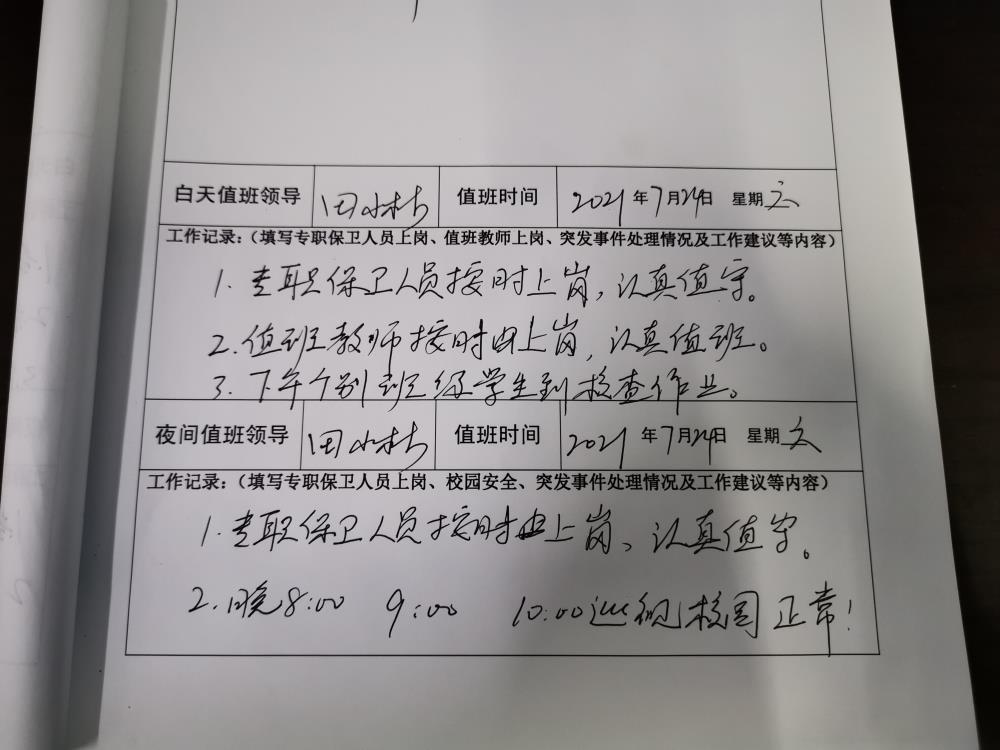 白天值班领导 田水林 值班时间 2021年7月24日 星期六
工作记录:(填写专职保卫人员上岗、值班教师上岗、突发事件处理情况及工作建议等内容)
1.专职保卫人员按时上岗,认真值守。
2.值班教师按时上岗,认真值班。
3.下午个别班级学生到校查作业。
夜间值班领导 田水林 值班时间 2021年7月24日 星期六
工作记录:(填写专职保卫人员上岗、校园安全、突发事件处理情况及工作建议等内容)
1.专职保卫人员按时上岗、认真值守。
2.晚8:00 9:00 10:00巡视校园正常!